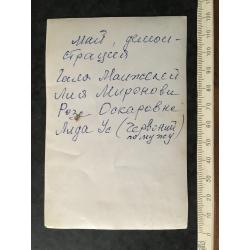 май, демон-
страцией
Галя Манжелей
Лия Миронови
Роза Оскаровна
Аида Ус (Червский
по мужу)